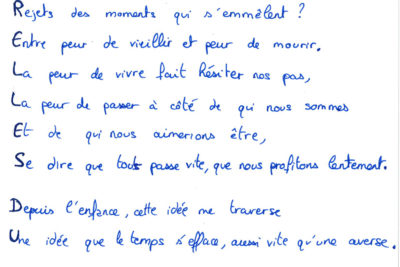 Rejets des moments qui s'emmêlent ?
Entre peur de vieillir et peur de mourir.
La peur de vivre fait hésiter nos pas,
La peur de passer à côté de qui nous sommes
Et de qui nous aimerions être,
Se dire que tout passe vite, que nous profitons lentement.
Depuis l'enfance, cette idée me traverse
Une idée que le temps s'efface, aussi vite qu'une averse.